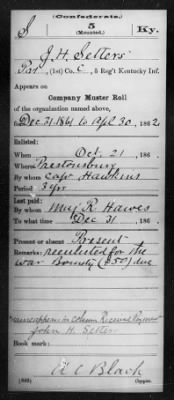 (Confederate.)
S 5 Ky.
(Mounted.)
J. H. Setters
Pvt, (1st) Co. C, 5 Reg't Kentucky Inf.
Appears on
Company Muster Roll
of the organization named above,
for Dec 31 1861 to Apl 30, 1862
Enlisted:
When Oct 21, 186
Where Prestonsburg
By whom Capt Hawkins
Period 3 yrs
Last paid:
By whom Maj R. Hawes
To what time Dec 31, 186
Present or absent Present
Remarks: reenlisted for the
war Bounty ($50) due
in column
John H. Setters
Book mark:
A C Black
(642) Copyist.